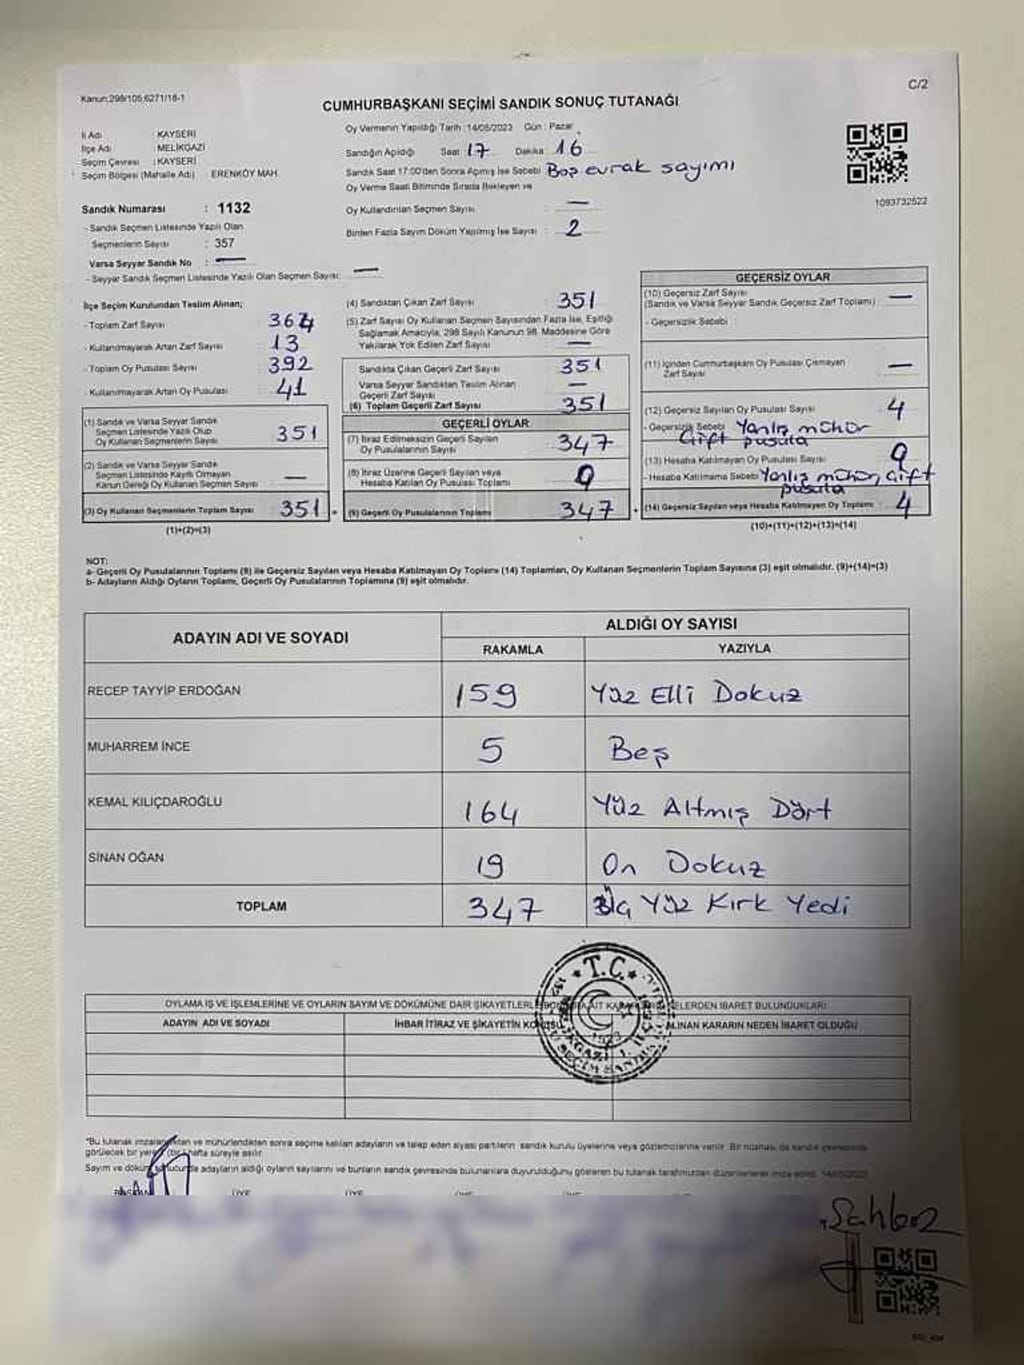 Kanun:298/105;6271/18-1
C/2
CUMHURBAŞKANI SEÇİMİ SANDIK SONUÇ TUTANAĞI
İl Adı : KAYSERİ
İlçe Adı : MELİKGAZİ
Seçim Çevresi : KAYSERİ
Seçim Bölgesi (Mahalle Adı) : ERENKÖY MAH.
Sandık Numarası : 1132
- Sandık Seçmen Listesinde Yazılı Olan
Seçmenlerin Sayısı : 357
Varsa Seyyar Sandık No : —
- Seyyar Sandık Seçmen Listesinde Yazılı Olan Seçmen Sayısı: —
Oy Vermenin Yapıldığı Tarih :14/05/2023 Gün : Pazar
Sandığın Açıldığı Saat : 17 Dakika : 16
Sandık Saat 17:00'den Sonra Açılmış İse Sebebi Boş evrak sayımı
Oy Verme Saati Bitiminde Sırada Bekleyen ve
Oy Kullandırılan Seçmen Sayısı : —
Birden Fazla Sayım Döküm Yapılmış İse Sayısı : 2
1093732522
İlçe Seçim Kurulundan Teslim Alınan;
- Toplam Zarf Sayısı 364
- Kullanılmayarak Artan Zarf Sayısı 13
- Toplam Oy Pusulası Sayısı 392
- Kullanılmayarak Artan Oy Pusulası 41
(1) Sandık ve Varsa Seyyar Sandık
Seçmen Listesinde Yazılı Olup
Oy Kullanan Seçmenlerin Sayısı 351
(2) Sandık ve Varsa Seyyar Sandık
Seçmen Listesinde Kayıtlı Olmayan
Kanun Gereği Oy Kullanan Seçmen Sayısı —
(3) Oy Kullanan Seçmenlerin Toplam Sayısı 351
(1)+(2)=(3)
(4) Sandıktan Çıkan Zarf Sayısı 351
(5) Zarf Sayısı Oy Kullanan Seçmen Sayısından Fazla İse, Eşitliği
Sağlamak Amacıyla, 298 Sayılı Kanunun 98. Maddesine Göre
Yakılarak Yok Edilen Zarf Sayısı —
Sandıkta Çıkan Geçerli Zarf Sayısı 351
Varsa Seyyar Sandıktan Teslim Alınan
Geçerli Zarf Sayısı —
(6) Toplam Geçerli Zarf Sayısı 351
GEÇERLİ OYLAR
(7) İtiraz Edilmeksizin Geçerli Sayılan
Oy Pusulalarının Sayısı 347
(8) İtiraz Üzerine Geçerli Sayılan veya
Hesaba Katılan Oy Pusulası Toplamı 0
(9) Geçerli Oy Pusulalarının Toplamı 347
GEÇERSİZ OYLAR
(10) Geçersiz Zarf Sayısı
(Sandık ve Varsa Seyyar Sandık Geçersiz Zarf Toplamı) —
- Geçersizlik Sebebi :
(11) İçinden Cumhurbaşkanı Oy Pusulası Çıkmayan
Zarf Sayısı —
(12) Geçersiz Sayılan Oy Pusulası Sayısı 4
- Geçersizlik Sebebi Yanlış mühür
Çift pusula
(13) Hesaba Katılmayan Oy Pusulası Sayısı 0
- Hesaba Katılmama Sebebi Yanlış mühür, Çift
pusula
(14) Geçersiz Sayılan veya Hesaba Katılmayan Oy Toplamı 4
(10)+(11)+(12)+(13)=(14)
NOT:
a- Geçerli Oy Pusulalarının Toplamı (9) ile Geçersiz Sayılan veya Hesaba Katılmayan Oy Toplamı (14) Toplamları, Oy Kullanan Seçmenlerin Toplam Sayısına (3) eşit olmalıdır. (9)+(14)=(3)
b- Adayların Aldığı Oyların Toplamı, Geçerli Oy Pusulalarının Toplamına (9) eşit olmalıdır.
ADAYIN ADI VE SOYADI
ALDIĞI OY SAYISI
RAKAMLA YAZIYLA
RECEP TAYYİP ERDOĞAN 159 Yüz Elli Dokuz
MUHARREM İNCE 5 Beş
KEMAL KILIÇDAROĞLU 164 Yüz Altmış Dört
SİNAN OĞAN 19 On Dokuz
TOPLAM 347 Üç Yüz Kırk Yedi
T.C.
OYLAMA İŞ VE İŞLEMLERİNE VE OYLARIN SAYIM VE DÖKÜMÜNE DAİR ŞİKAYETLERLE NELERDEN İBARET BULUNDUKLARI
ADAYIN ADI VE SOYADI İHBAR İTİRAZ VE ŞİKAYETİN KONUSU ALINAN KARARIN NEDEN İBARET OLDUĞU
*Bu tutanak imzalandıktan ve mühürlendikten sonra seçime katılan adayların ve talep eden siyasi partilerin sandık kurulu üyelerine veya gözlemcilerine verilir. Bir nüshası da sandık çevresinde
görülecek bir yere (bir) hafta süreyle asılır.
Sayım ve döküm sonucunda adayların aldığı oyların sayılarını ve bunların sandık çevresinde bulunanlara duyurulduğunu gösteren bu tutanak tarafımızdan düzenlenerek imza edildi. 14/05/2023
BAŞKAN ÜYE ÜYE ÜYE ÜYE